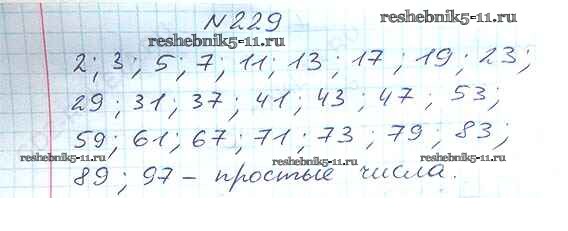 №229
reshebnik5-11.ru
reshebnik5-11.ru
2; 3; 5; 7; 11; 13; 17; 19; 23;
29; 31; 37; 41; 43; 47; 53;
59; 61; 67; 71; 73; 79; 83;
reshebnik5-11.ru
reshebnik5-11.ru
89; 97 – простые числа.